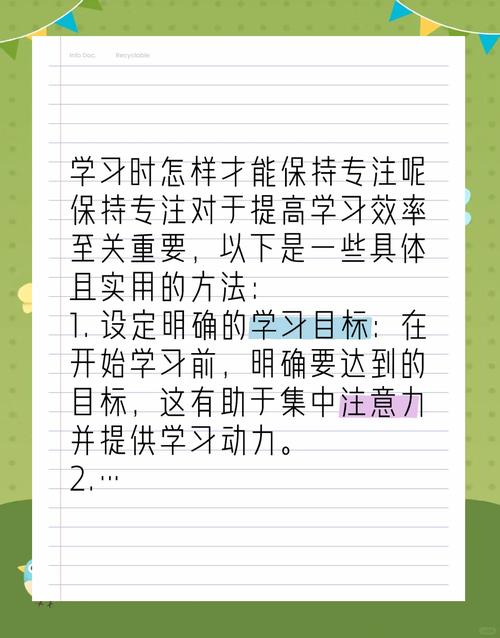 Info Doc. Recyclable
学习时怎样才能保持专注呢
保持专注对于提高学习效率
至关重要，以下是一些具体
且实用的方法：
1. 设定明确的学习目标：在
开始学习前，明确要达到的
目标，这有助于集中注意力
并提供学习动力。
2.…